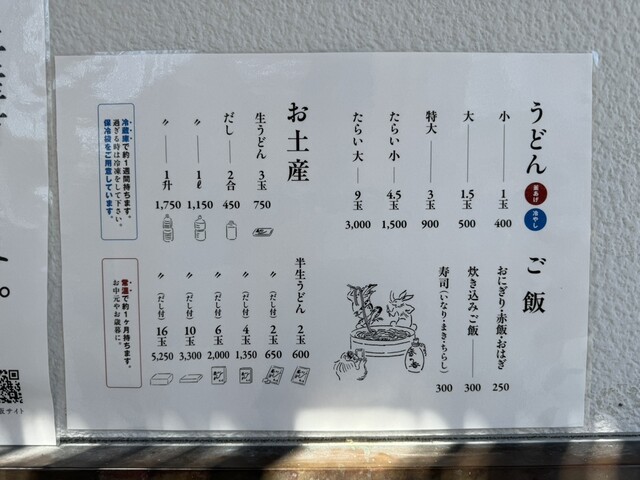 うどん 釜あげ 冷やし
小 1玉 400
大 1.5玉 500
特大 3玉 900
たらい 小 4.5玉 1,500
たらい 大 9玉 3,000
ご飯
おにぎり・赤飯・おはぎ 250
炊き込みご飯 300
寿司(いなり・まき・ちらし) 300
お土産
生うどん 3玉 750
だし 2合 450
〃 1ℓ 1,150
〃 1升 1,750
冷蔵庫で約1週間持ちます。
過ぎる時は冷凍をして下さい。
保冷袋をご用意しています。
半生うどん 2玉 600
〃(だし付) 2玉 650
〃(だし付) 4玉 1,350
〃(だし付) 6玉 2,000
〃(だし付) 10玉 3,300
〃(だし付) 16玉 5,250
常温で約1ヶ月持ちます。
お中元やお歳暮に。
サイト